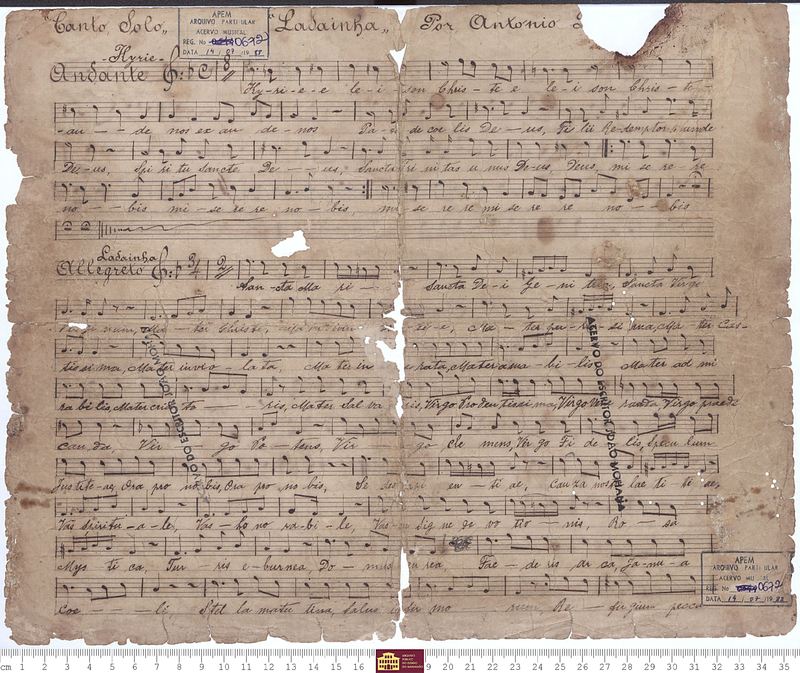 "Canto Solo" "Ladainha" Por Antonio
APEM
ARQUIVO PARTICULAR
ACERVO MUSICAL
REG. No 0672
DATA 19 / 07 / 19 88
-Kyrie-
Andante
Ky-ri-e-e le-i son Chris-te e le-i son Chris-te-
-au-de nos ex au de-nos Pa- de coe lis De-us, Fi lii Redemptor munde
De-us, Spi ri tu Sancte De-us, Sancta Tri ni tas u nus De-us, Deus, mi se re re
no-bis mi-se re re no-bis, mi-se re re mi se re re no-bis
Ladainha
Allegreto 3/4 2
San-cta Ma ri- Sancta De-i Ge-ni trix, Sancta Virgo
Ma-ter Christe, Ma-ter pu-ris-si ma, Ma ter Cas-
tis si ma, Mater invio-la ta, Ma ter in rata, Mater ama-bi-lis Ma ter ad mi
ra bi lis, Mater cria to-ris, Ma ter Sal va ris, Virgo Prodentissi ma, Virgo Vene randa Virgo praedi
can da, Vir go Po-tens, Vir go cle mens, Vir go Fi de-lis, Specu lum
Justite-ae, Ora pro no bis, Ora pro no bis, Se des en-ti ae, Cau za nos lae ti ti ae,
Vas Spiritu-a-le, Vas-ho no ra-bi-le, Vas in sig ne de vo tio-nis, Ro-sa
Mys ti ca, Tur-ris e-burnea, Do-mus au rea Fae-de ris ar ca, Ja-nu-a
Coe-li, Stel la matu tina, Salus infir mo rum, Re-fu gium pecca
ACERVO DO ESCRITOR JOÃO MOHANA
ACERVO DO ESCRITOR JOÃO MOHANA
APEM
ARQUIVO PARTICULAR
ACERVO MUSICAL
REG. No 0672
DATA 19 / 07 / 19 88
cm 1 2 3 4 5 6 7 8 9 10 11 12 13 14 15 16 9 20 21 22 23 24 25 26 27 28 29 30 31 32 33 34 35